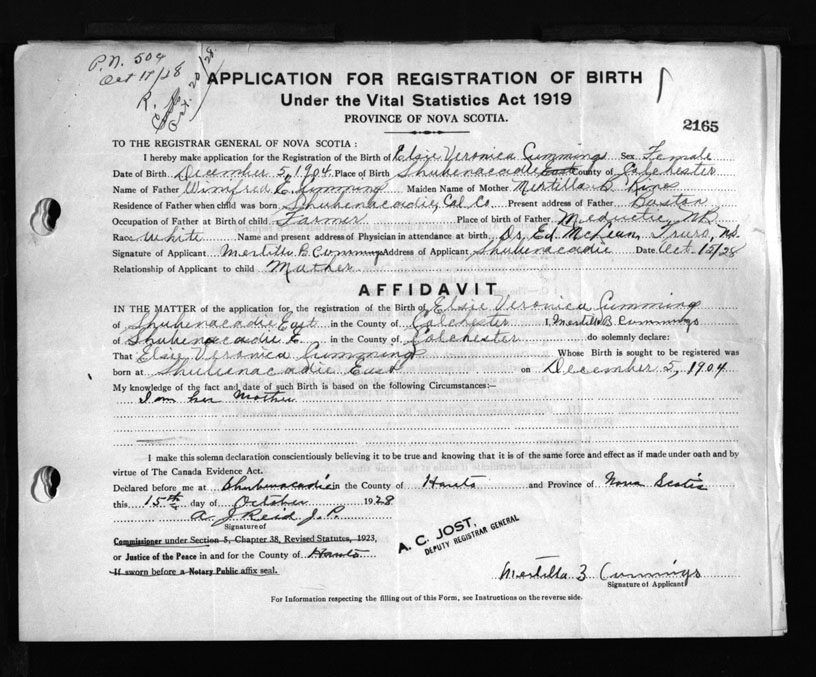 P.N. 504
Oct 17/28
R.
Oct. 20/28.
APPLICATION FOR REGISTRATION OF BIRTH
Under the Vital Statistics Act 1919
PROVINCE OF NOVA SCOTIA.
2165
TO THE REGISTRAR GENERAL OF NOVA SCOTIA :
I hereby make application for the Registration of the Birth of Elsie Veronica Cummings Sex Female
Date of Birth December 5, 1904 Place of Birth Shubenacadie East County of Colchester
Name of Father Winifred C. Cumming Maiden Name of Mother Mertilla B
Residence of Father when child was born Shubenacadie, Col. Co. Present address of Father Boston
Occupation of Father at Birth of child Farmer Place of birth of Father Meductic, NB
Race White Name and present address of Physician in attendance at birth Dr. Ed. McLean, Truro, N.S.
Signature of Applicant Mertilla B Cummings Address of Applicant Shubenacadie Date Oct. 15/28
Relationship of Applicant to child Mother
AFFIDAVIT
IN THE MATTER of the application, for the registration of the Birth of Elsie Veronica Cumming
of Shubenacadie East in the County of Colchester I, Mertilla B. Cummings
of Shubenacadie E. in the County of Colchester do solemnly declare:
That Elsie Veronica Cumming Whose Birth is sought to be registered was
born at Shubenacadie East on December 5, 1904
My knowledge of the fact and date of such Birth is based on the following Circumstances:—
I am her Mother
I make this solemn declaration conscientiously believing it to be true and knowing that it is of the same force and effect as if made under oath and by
virtue of The Canada Evidence Act.
Declared before me at Shubenacadie in the County of Hants and Province of Nova Scotia
this 15th day of October 1928
A. J Reid J. P.
Signature of
Commissioner under Section 5, Chapter 38, Revised Statutes, 1923,
or Justice of the Peace in and for the County of Hants
If sworn before a Notary Public affix seal.
A. C. JOST,
DEPUTY REGISTRAR GENERAL
Mertilla B Cummings
Signature of Applicant
For Information respecting the filling out of this Form, see Instructions on the reverse side.